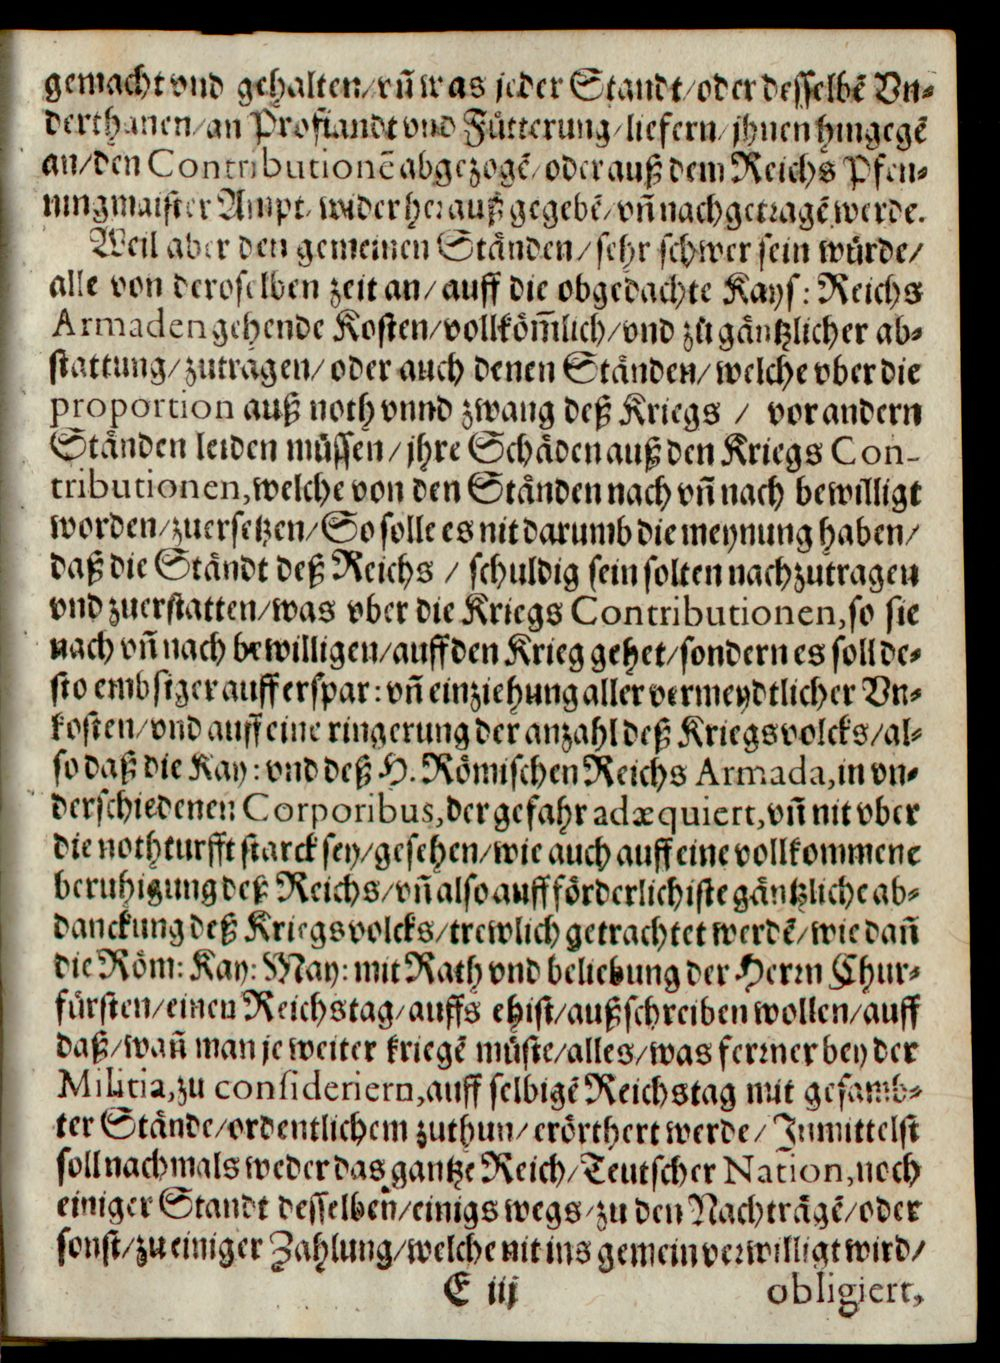 gemacht vnd gehalten/ vñ was jeder Standt/ oder desselbẽ Vn⸗
derthanen/ an Profiandt vnd Fütterung/ liefern/ jhnen hingegẽ
an/ den Contributionẽ abgezogẽ/ oder auß dem Reichs Pfen⸗
ningmaister Ampt/ wider herauß gegebẽ/ vñ nachgetragẽ werde.
Weil aber den gemeinen Ständen/ sehr schwer sein würde/
alle von deroselben zeit an/ auff die obgedachte Kays: Reichs
Armaden gehende Kosten/ vollköm̃lich/ vnd zů gäntzlicher ab⸗
stattung/ zutragen/ oder auch denen Ständen/ welche vber die
proportion auß noth vnnd zwang deß Kriegs / vor andern
Ständen leiden müssen/ jhre Schäden auß den Kriegs Con-
tributionen, welche von den Ständen nach vñ nach bewilligt
worden/ zuersetzen/ So solle es nit darumb die meynung haben/
daß die Ständt deß Reichs / schuldig sein solten nachzutragen
vnd zuerstatten/ was vber die Kriegs Contributionen, so sie
nach vñ nach bewilligen/ auff den Krieg gehet/ sondern es soll de⸗
sto embsiger auff erspar: vñ einziehung aller vermeydtlicher Vn⸗
kosten/ vnd auff eine ringerung der anzahl deß Kriegsvolcks/ al⸗
so daß die Kay: vnd deß H. Römischen Reichs Armada, in vn⸗
derschiedenen Corporibus, der gefahr adæquiert, vñ nit vber
die nothturfft starck sey/ gesehen/ wie auch auff eine vollkommene
beruhigung deß Reichs/ vñ also auff förderlichiste gäntzliche ab⸗
danckung deß Kriegsvolcks/ trewlich getrachtet werdẽ/ wie dañ
die Röm: Kay: May: mit Rath vnd beliebung der Herrn Chur⸗
fürsten/ einen Reichstag/ auffs ehist/ außschreiben wollen/ auff
daß/ wañ man je weiter kriegẽ müste/ alles/ was ferrner bey der
Militia, zu consideriern, auff selbigẽ Reichstag mit gesamb⸗
ter Stände/ ordentlichem zuthun/ erörthert werde/ Inmittelst
soll nachmals weder das gantze Reich/ Teutscher Nation, noch
einiger Standt desselben/ einigs wegs/ zu den Nachträgẽ/ oder
sonst/ zu einiger Zahlung/ welche nit ins gemein verwilligt wird/
E iij obligiert,